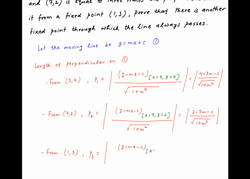 and (7,2) is equal to three times the
it from a fixed point (1,3), prove that there is another
fixed point through which the line always passes.
Let the moving line be y=mx+c ①
Length of perpendicular on ①
- From (3,4), P₁ = | (y-mx-c)[x=3, y=4] / √1+m² | = | 4-3m-c / √1+m² |
- From (7,2), P₂ = | (y-mx-c)[x=7, y=2] / √1+m² | = | 2-7m-c / √1+m² |
- From (1,3), P₃ = | (y-mx-c)[x=